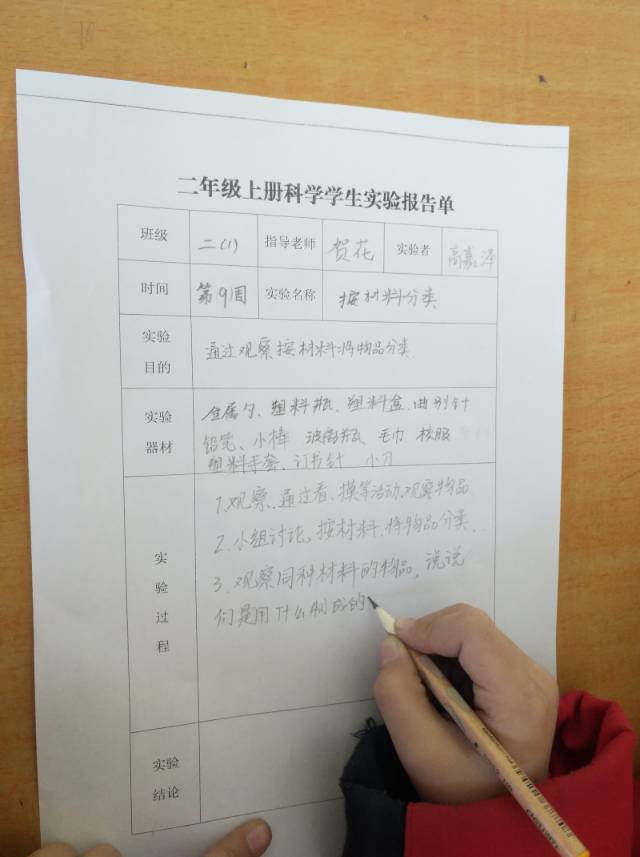 二年级上册科学学生实验报告单
班级 二(1) 指导老师 贺花 实验者 高嘉泽
时间 第9周 实验名称 按材料分类
实验目的 通过观察,按材料将物品分类.
实验器材 金属勺、塑料瓶、塑料盒、曲别针
铅笔、小棒 玻璃瓶 毛巾 校服
塑料手套、订书针 小刀
实验过程 1.观察.通过看、摸等活动,观察物品
2.小组讨论。按材料.将物品分类.
3.观察同种材料的物品,说说
们是用什么制成的
实验结论